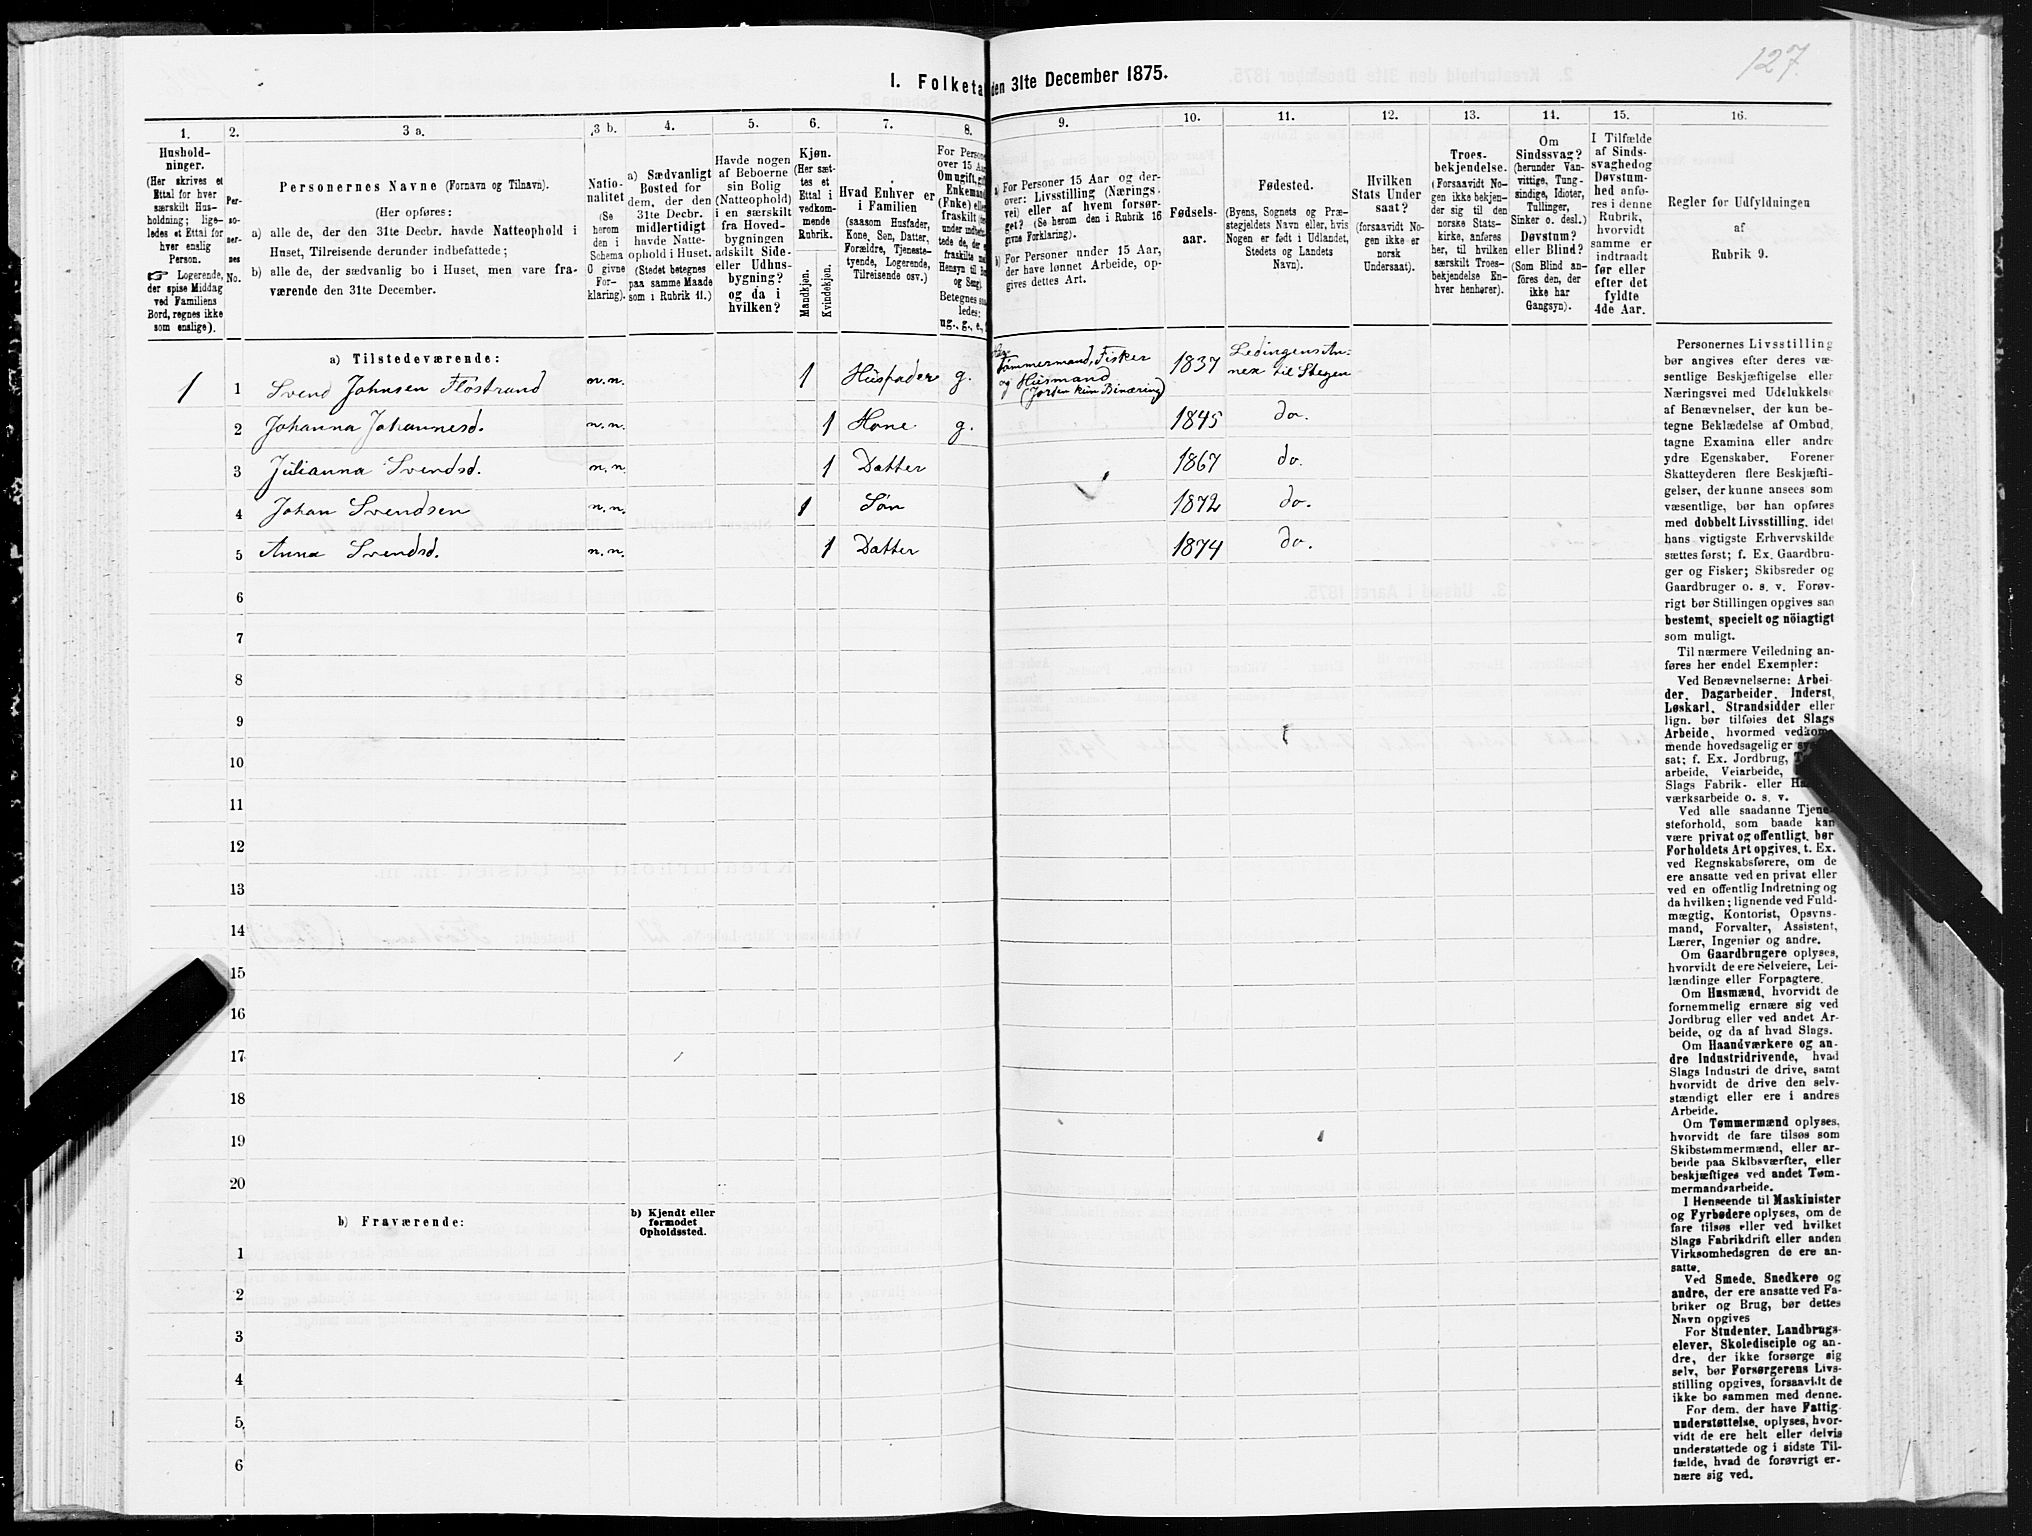 127.
I. Folketa den 31te December 1875.
1. 2. 3 a. 3 b. 4. 5. 6. 7. 8. 9. 10. 11. 12. 13. 14. 15. 16.
Hushold-
ninger.
(Her skrives et
Ettal for hver
særskilt Hus-
holdning; lige-
ledes et Ettal for
hver enslig
Person.
☞ Logerende,
der spise Middag
ved Familiens
Bord, regnes ikke
som enslige).
Per-
so-
ner-
nes
No.
Personernes Navne (Fornavn og Tilnavn).
(Her opføres:
a) alle de, der den 31te Decbr. havde Natteophold i
Huset, Tilreisende derunder indbefattede;
b) alle de, der sædvanlig bo i Huset, men vare fra-
værende den 31te December.
Natio-
nalitet
(Se
herom
den i
Schema
O givne
For-
klaring).
a) Sædvanligt
Bosted for
dem, der den
31te Decbr.
midlertidigt
havde Natte-
ophold i Huset.
(Stedet betegnes
paa samme Maade
som i Rubrik 11.)
Havde nogen
af Beboerne
sin Bolig
(Natteophold)
i en særskilt
fra Hoved-
bygningen
adskilt Side-
eller Udhus-
bygning?
og da i
hvilken?
Kjøn.
(Her sæt-
tes et
Ettal i
vedkom-
mende
Rubrik.
Mandkjøn.
Kvindekjøn.
Hvad Enhver er
i Familien
(saasom Husfader,
Kone, Søn, Datter,
Forældre, Tjeneste-
tyende, Logerende,
Tilreisende osv.)
For Persone
over 15 Aar
Om ugift, gift
Enkemand
(Enke) eller
fraskilt
Betegnes saa
ledes:
ug., g., e., f.
a) For Personer 15 Aar og der-
over: Livsstilling (Nærings-
vei) eller af hvem forsør-
get? (Se herom den i Rubrik 16
givne Forklaring).
b) For Personer under 15 Aar,
der have lønnet Arbeide, op-
gives dettes Art.
Fødsels-
aar.
Fødested.
(Byens, Sognets og Præ-
stegjeldets Navn eller, hvis
Nogen er født i Udlandet,
Stedets og Landets
Navn).
Hvilken
Stats Under
saat?
(forsaavidt No-
gen ikke er
norsk
Undersaat).
Troes-
bekjendelse.
(Forsaavidt No-
gen ikke bekjen-
der sig til den
norske Stats-
kirke, anføres
her, til hvilken
særskilt Troes-
bekjendelse En-
hver henhører).
Om
Sindssvag?
(herunder Van-
vittige, Tung-
sindige, Idioter,
Tullinger,
Sinker o. desl.)
Døvstum?
eller Blind?
(Som Blind an-
föres den, der
ikke har
Gangsyn).
I Tilfælde
af Sinds-
svaghed og
Døvstum-
hed anfø-
res i denne
Rubrik,
hvorvidt
samme er
indtraadt
før eller
efter det
fyldte
4de Aar.
Regler for Udfyldningen
af
Rubrik 9.
a) Tilstedeværende:
1 1 Svend Johnsen Flostrand n.n. 1 Husfader g. Tømmermand, Fisker
og Husmand
(Jorden kun Binæring) 1837 Ledingens An-
nex til Stegen
2 Johanna Johannesd. n.n. 1 Kone g. 1845 do.
3 Julianna Svendsd. n.n. 1 Datter 1867 do.
4 Johan Svendsen n.n. 1 Søn 1872 do.
5 Anna Svendsd. n.n. 1 Datter 1874 do.
6
7
8
9
10
11
12
13
14
15
16
17
18
19
20
b) Fraværende:
b) Kjendt eller
formodet
Opholdssted.
1
2
3
4
5
6
Personernes Livsstilling
bør angives efter deres væ-
sentlige Beskjæftigelse eller
Næringsvei med Udelukkelse
af Benævnelser, der kun be-
tegne Beklædelse af Ombud,
tagne Examina eller andre
ydre Egenskaber. Forener
Skatteyderen flere Beskjæfti-
gelser, der kunne ansees som
væsentlige, bør han opføres
med dobbelt Livsstilling, idet
hans vigtigste Erhvervskilde
sættes først; f. Ex. Gaardbru-
ger og Fisker; Skibsreder og
Gaardbruger o. s. v. Forøv-
rigt bør Stillingen opgives saa
bestemt, specielt og nöiagtigt
som muligt.
Til nærmere Veiledning an-
føres her endel Exempler:
Ved Benævnelserne: Arbei-
der, Dagarbeider, Inderst,
Løskarl, Strandsidder eller
lign. bør tilføies det Slags
Arbeide, hvormed vedkom-
mende hovedsagelig er
sat; f. Ex. Jordbrug,
arbeide, Veiarbeide,
Slags Fabrik- eller
værksarbeide o. s. v.
Ved alle saadanne Tjene-
steforhold, som baade kan
være privat og offentligt, bør
Forholdets Art opgives, t. Ex.
ved Regnskabsførere, om de
ere ansatte ved en privat eller
ved en offentlig Indretning og
da hvilken; lignende ved Fuld-
mægtig, Kontorist, Opsyns-
mand, Forvalter, Assistent,
Lærer, Ingeniør og andre.
Om Gaardbrugere oplyses,
hvorvidt de ere Selveiere, Lei-
lændinge eller Forpagtere.
Om Husmænd, hvorvidt de
fornemmelig ernære sig ved
Jordbrug eller ved andet Ar-
beide, og da af hvad Slags.
Om Haandværkere og an-
dre Industridrivende, hvad
Slags Industri de drive, samt
hvorvidt de drive den selv-
stændigt eller ere i andres
Arbeide.
Om Tømmermænd oplyses,
hvorvidt de fare tilsøs som
Skibstømmermænd, eller ar-
beide paa Skibsværfter, eller
beskjæftiges ved andet Tøm-
mermandsarbeide.
I Henseende til Maskinister
og Fyrbødere oplyses, om de
fare tilsøs eller ved hvilket
Slags Fabrikdrift eller anden
Virksomhedsgren de ere an-
satte.
Ved Smede, Snedkere og
andre, der ere ansatte ved Fa-
briker og Brug, bør dettes
Navn opgives
For Studenter, Landbrugs-
elever, Skoledisciple og an-
dre, der ikke forsørge sig
selv, bør Forsørgerens Livs-
stilling opgives, forsaavidt de
ikke bo sammen med denne.
For dem, der have Fattig-
understøttelse, oplyses, hvor-
vidt de ere helt eller delvis
understøttede og i sidste Til-
fælde, hvad de forøvrigt er-
nære sig ved.